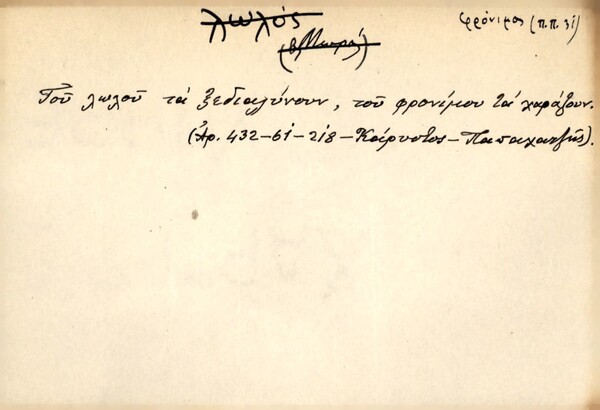 λωλός
φρόνιμος (π.π. 31)
(β. Μωρός)
Τοῦ λωλοῦ τά ξεδιαλύνουν, τοῦ φρονίμου τά χαράζουν.
(Ἀρ. 432-61-218-Κάρυστος-Παπαχατζῆς).